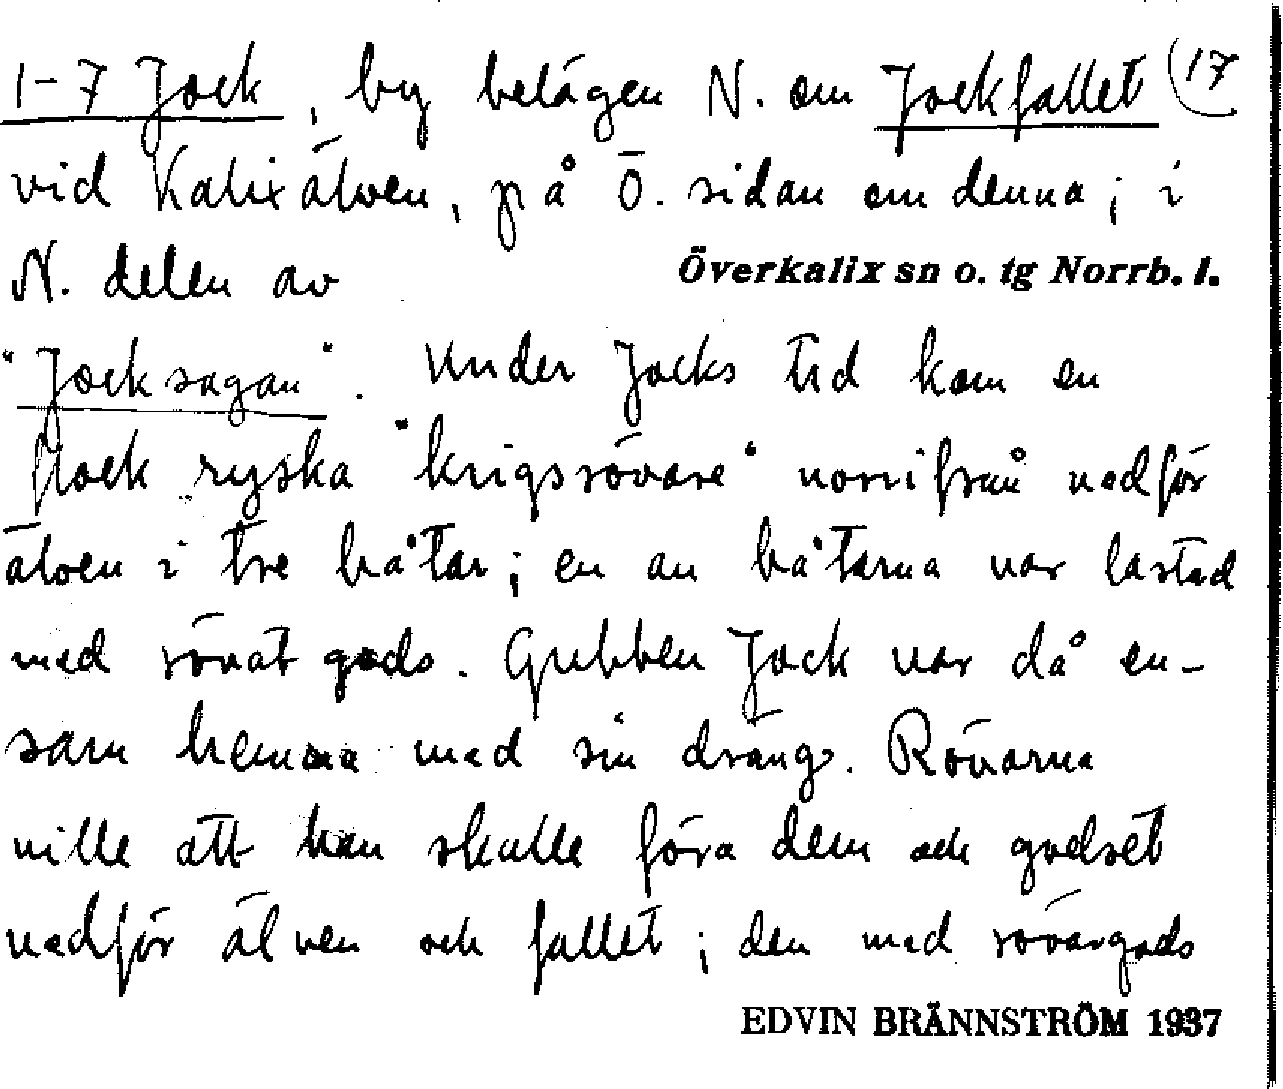 1-7 Jock, by belägen N. om Jockfallet (17
vid Kalixälven, på Ö. sidan om denna; i
N. delen av
Överkalix sn o. tg Norrb. l.
"Jocksagan". Under Jocks tid kom en
flock ryska "krigsrövare" norrifrån nedför
älven i tre båtar; en av båtarna var lastad
med rövat gods. Gubben Jock var då en-
sam hemma med sin dräng. Rövarna
ville att han skulle föra dem och godset
nedför älven och fallet; den med rövargods
EDVIN BRÄNNSTRÖM 1937